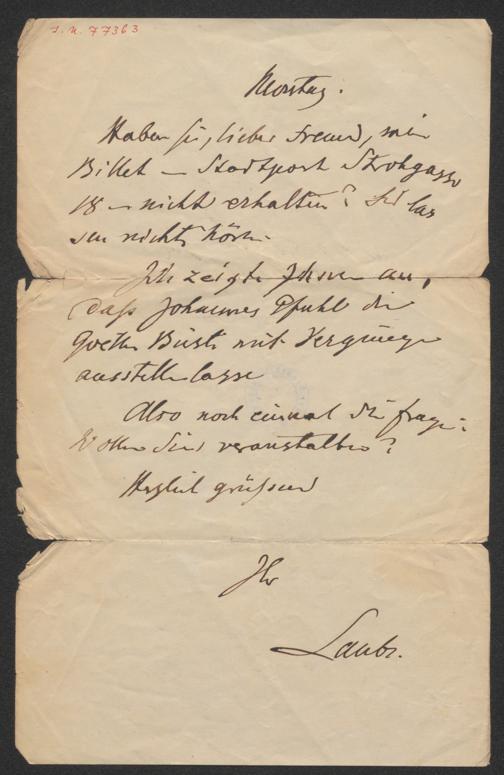 I. N. 77363
Montag.
Haben Sie, lieber Freund, mein
Billet – Stadtpost Strohgasse
18 – nicht erhalten? Sie las
sen nichts hören.
Ich zeigte Ihnen an,
daß Johannes Pfuhl die
Goethe Büste mit Vergnügen
ausstellen lasse
Also noch einmal die Frage:
Wollen Sie's veranstalten?
Herzlich grüßend
Ihr
Laube.